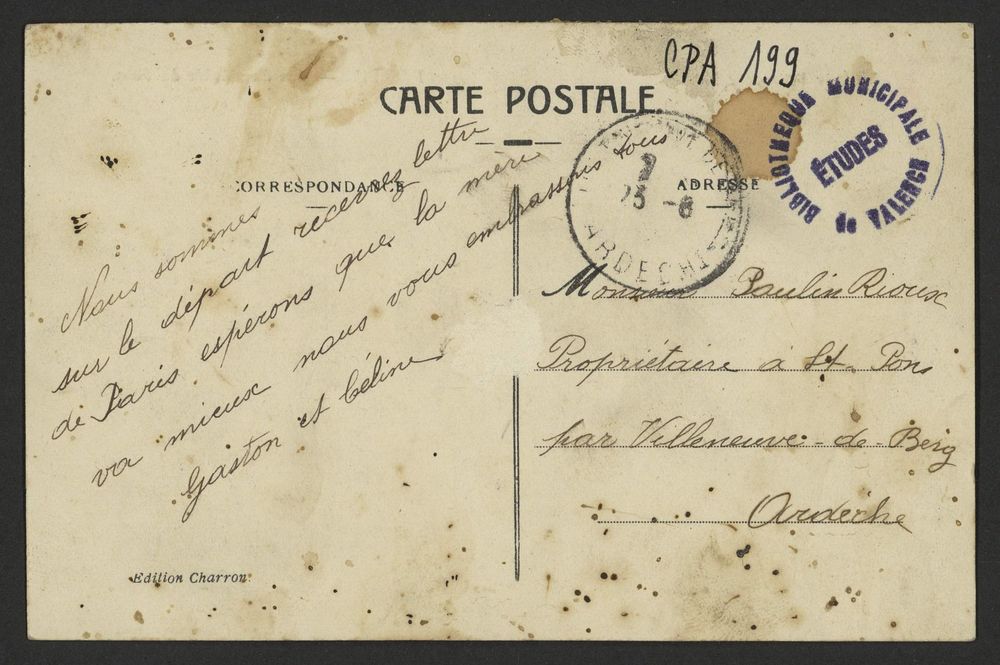 CPA 199
CARTE POSTALE
BIBLIOTHEQUE MUNICIPALE
de VALENCE
ÉTUDES
CORRESPONDANCE
ADRESSE
ARDECHE
Nous sommes
sur le départ recevrez lettre
de Paris espérons que la mère
va mieux nous vous embrassons tous
Gaston et Céline
Edition Charron
Monsieur Paulin Rioux
Propriétaire à St. Pons
par Villeneuve-de-Berg
Ardèche